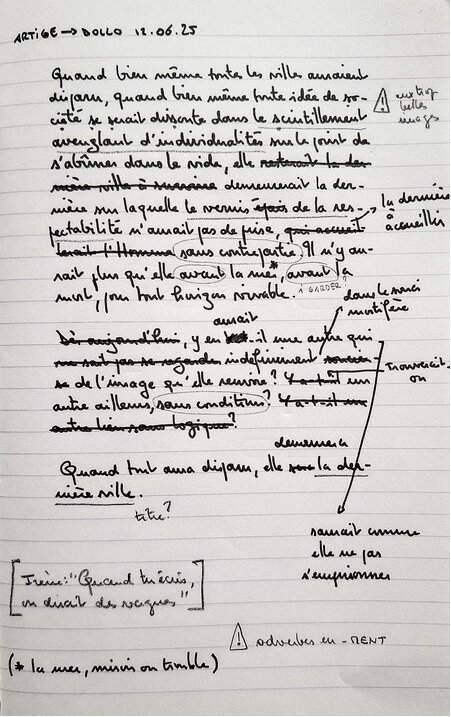 ARTIGE → DOLLO 12.06.25
Quand bien même toutes les villes auraient
disparu, quand bien même toute idée de so-
ciété se serait dissoute dans le scintillement
aveuglant d'individualités sur le point de
s'abîmer dans le vide, elle resterait la der-
nière ville à survivre demeurerait la der-
nière sur laquelle le vernis épais de la res-
pectabilité n'aurait pas de prise, qui accueil-
lerait l'Homme sans contrepartie. Il n'y au-
rait plus qu'elle avant la mer*, avant la
mort, pour tout horizon vivable.
⚠ belles
images
la dernière
à accueillir
↑ GARDER?
dans le souci
mortifère
aurait
Dès aujourd'hui, y en a-t-il une autre qui
ne sait pas se regarder indéfiniment soucieu-
se de l'image qu'elle renvoie? Y a-t-il un
autre ailleurs, sans conditions? Y a-t-il un
autre lien sans logique?
Trouverait-
on
demeurera
Quand tout aura disparu, elle sera la der-
nière ville.
titre?
saurait comme
elle ne pas
s'emprisonner
[Irène: "Quand tu écris,
on dirait des vagues"]
⚠ adverbes en -MENT
(* la mer, miroir ou trouble)